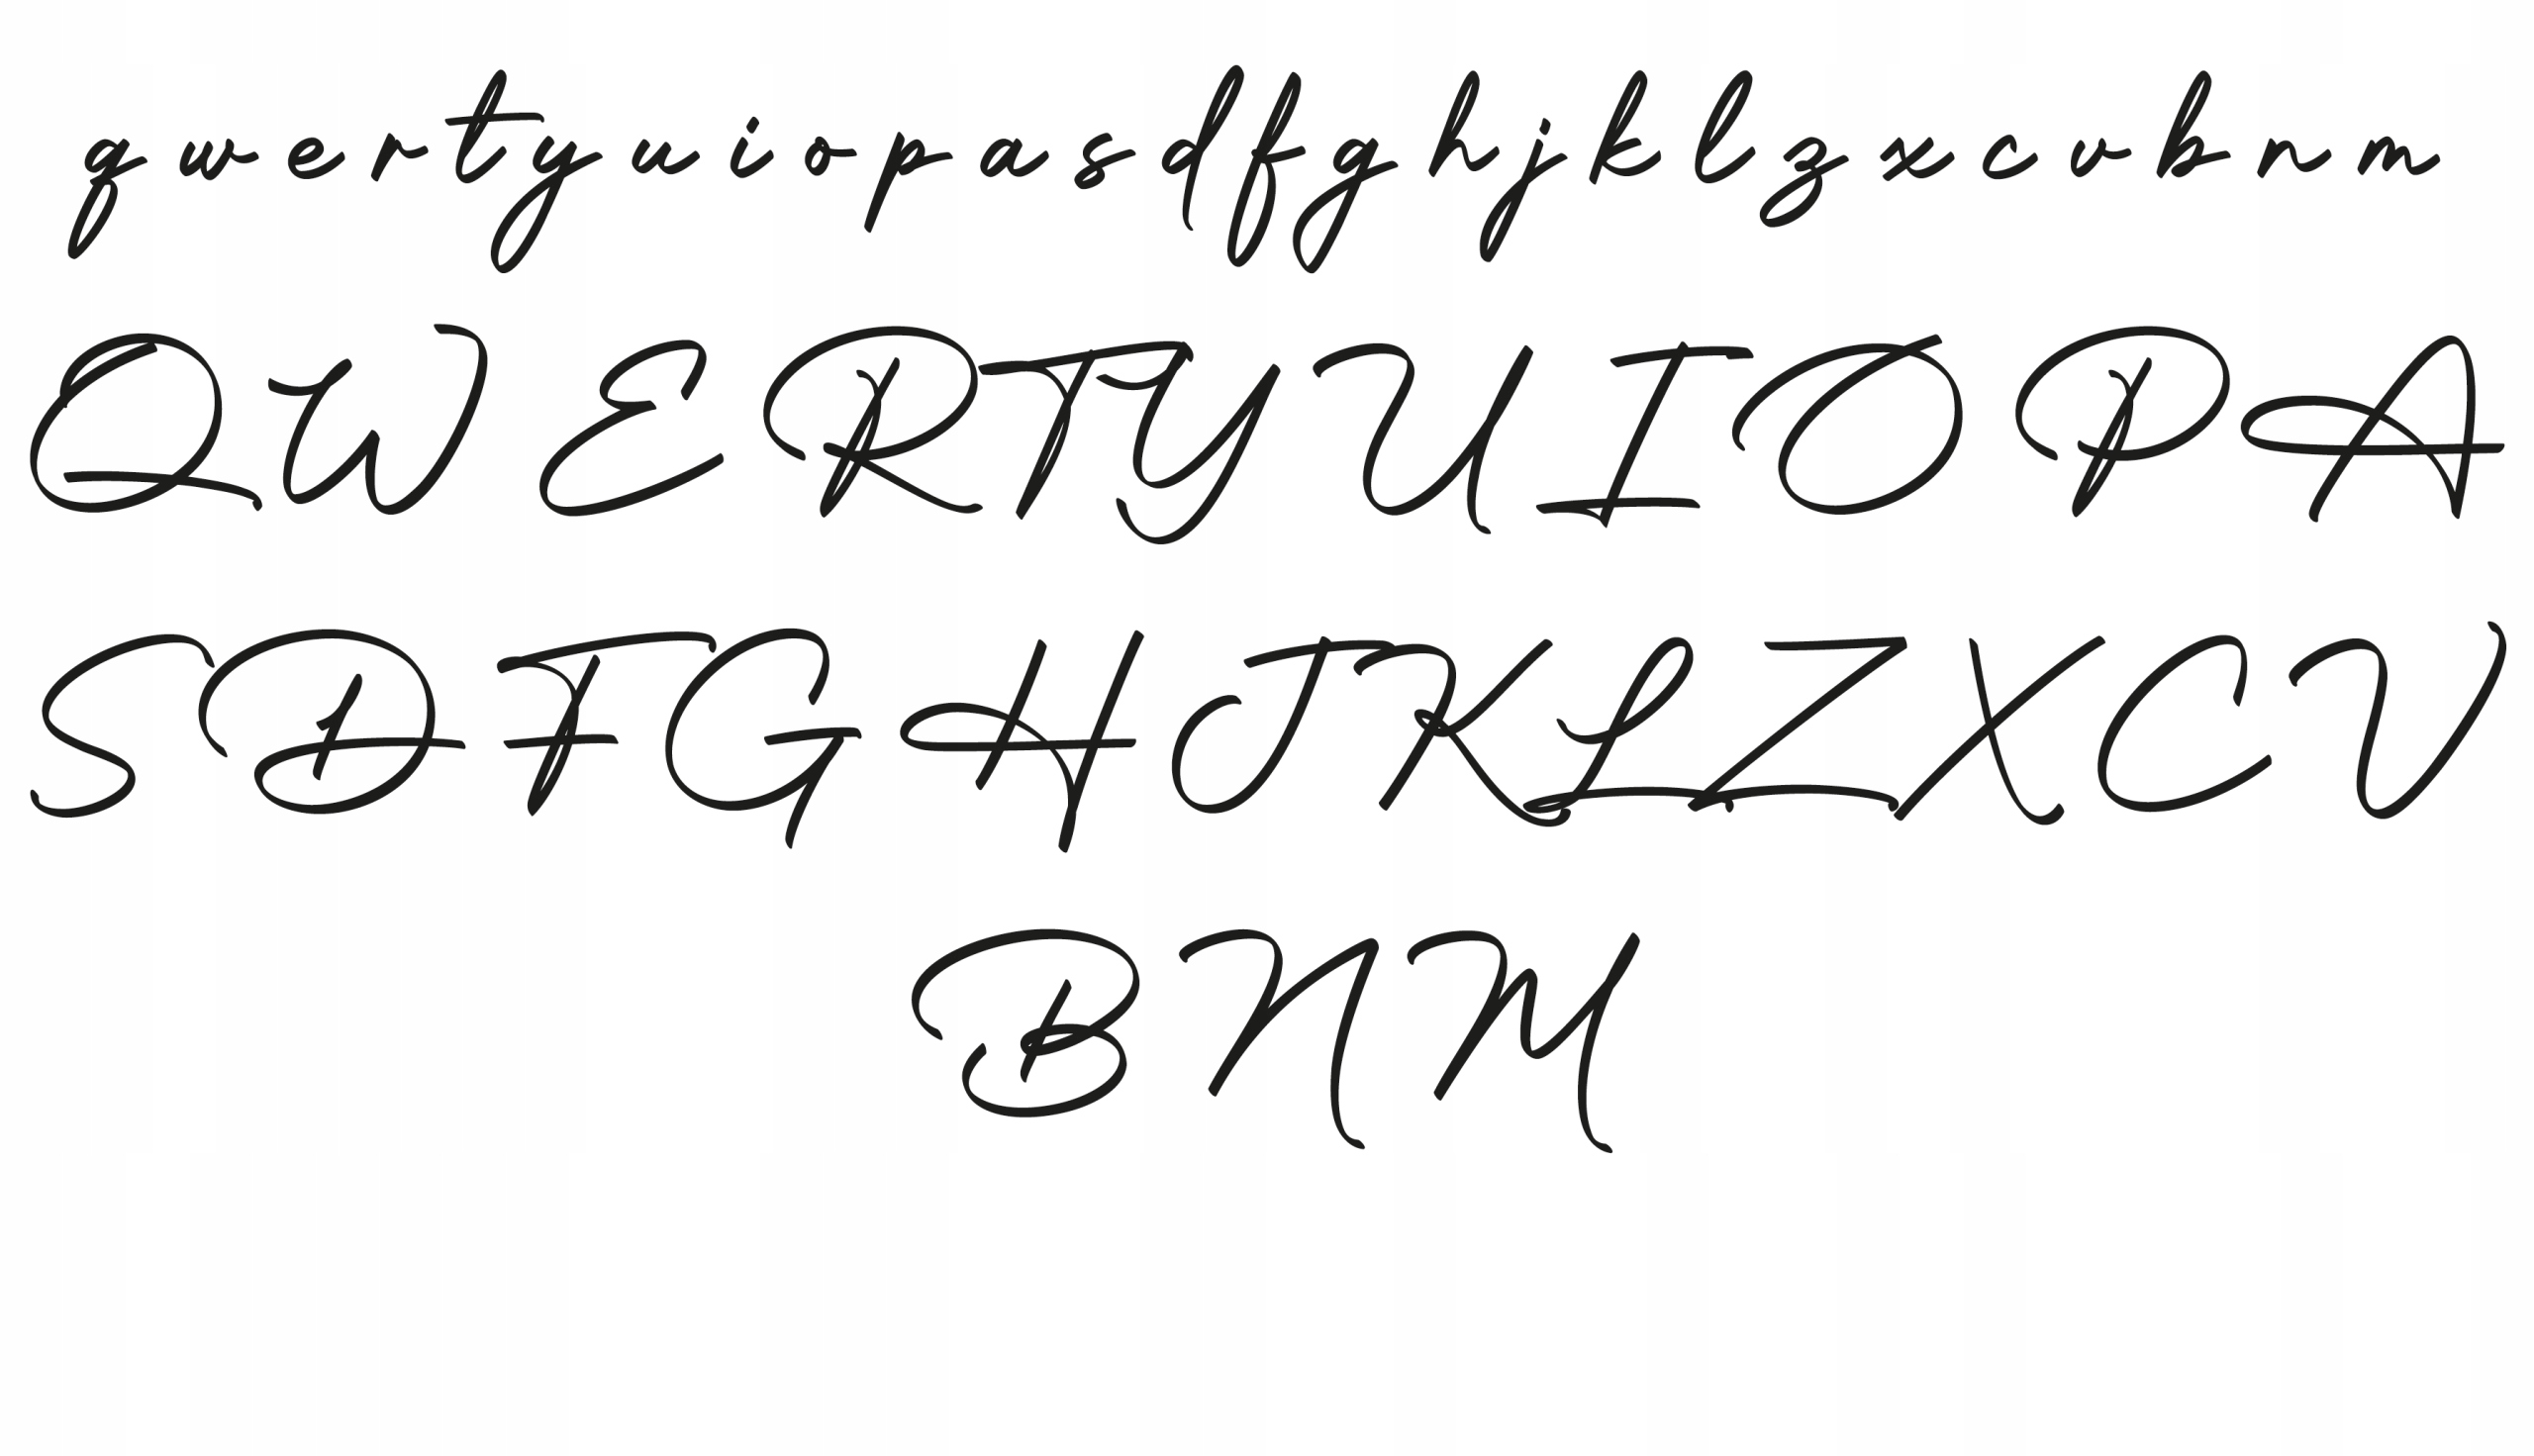 q w e r t y u i o p a s d f g h j k l z x c v b n m
Q W E R T Y U I O P A
S D F G H J K L Z X C V
B N M